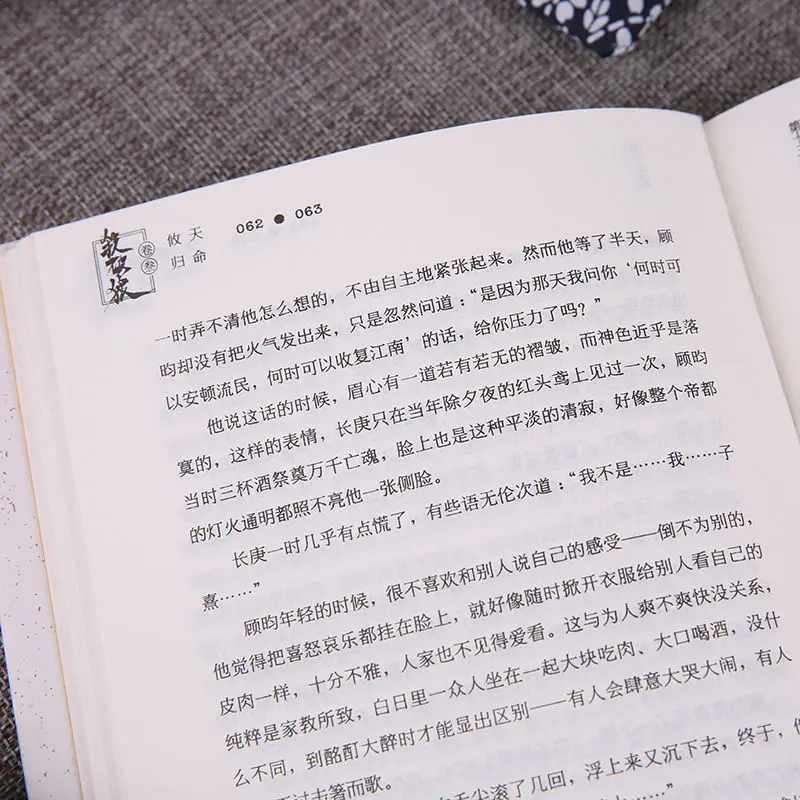 杀破狼
卷叁
攸天
归命
062 ● 063
一时弄不清他怎么想的，不由自主地紧张起来。然而他等了半天，顾
昀却没有把火气发出来，只是忽然问道：“是因为那天我问你‘何时可
以安顿流民，何时可以收复江南’的话，给你压力了吗？”
他说这话的时候，眉心有一道若有若无的褶皱，而神色近乎是落
寞的，这样的表情，长庚只在当年除夕夜的红头鸢上见过一次，顾昀
当时三杯酒祭奠万千亡魂，脸上也是这种平淡的清寂，好像整个帝都
的灯火通明都照不亮他一张侧脸。
长庚一时几乎有点慌了，有些语无伦次道：“我不是……我……子
熹……”
顾昀年轻的时候，很不喜欢和别人说自己的感受——倒不为别的，
他觉得把喜怒哀乐都挂在脸上，就好像随时掀开衣服给别人看自己的
皮肉一样，十分不雅，人家也不见得爱看。这与为人爽不爽快没关系，
纯粹是家教所致，白日里一众人坐在一起大块吃肉、大口喝酒，没什
么不同，到酩酊大醉时才能显出区别——有人会肆意大哭大闹，有人
过击箸而歌。
舌尖滚了几回，浮上来又沉下去，终于，他